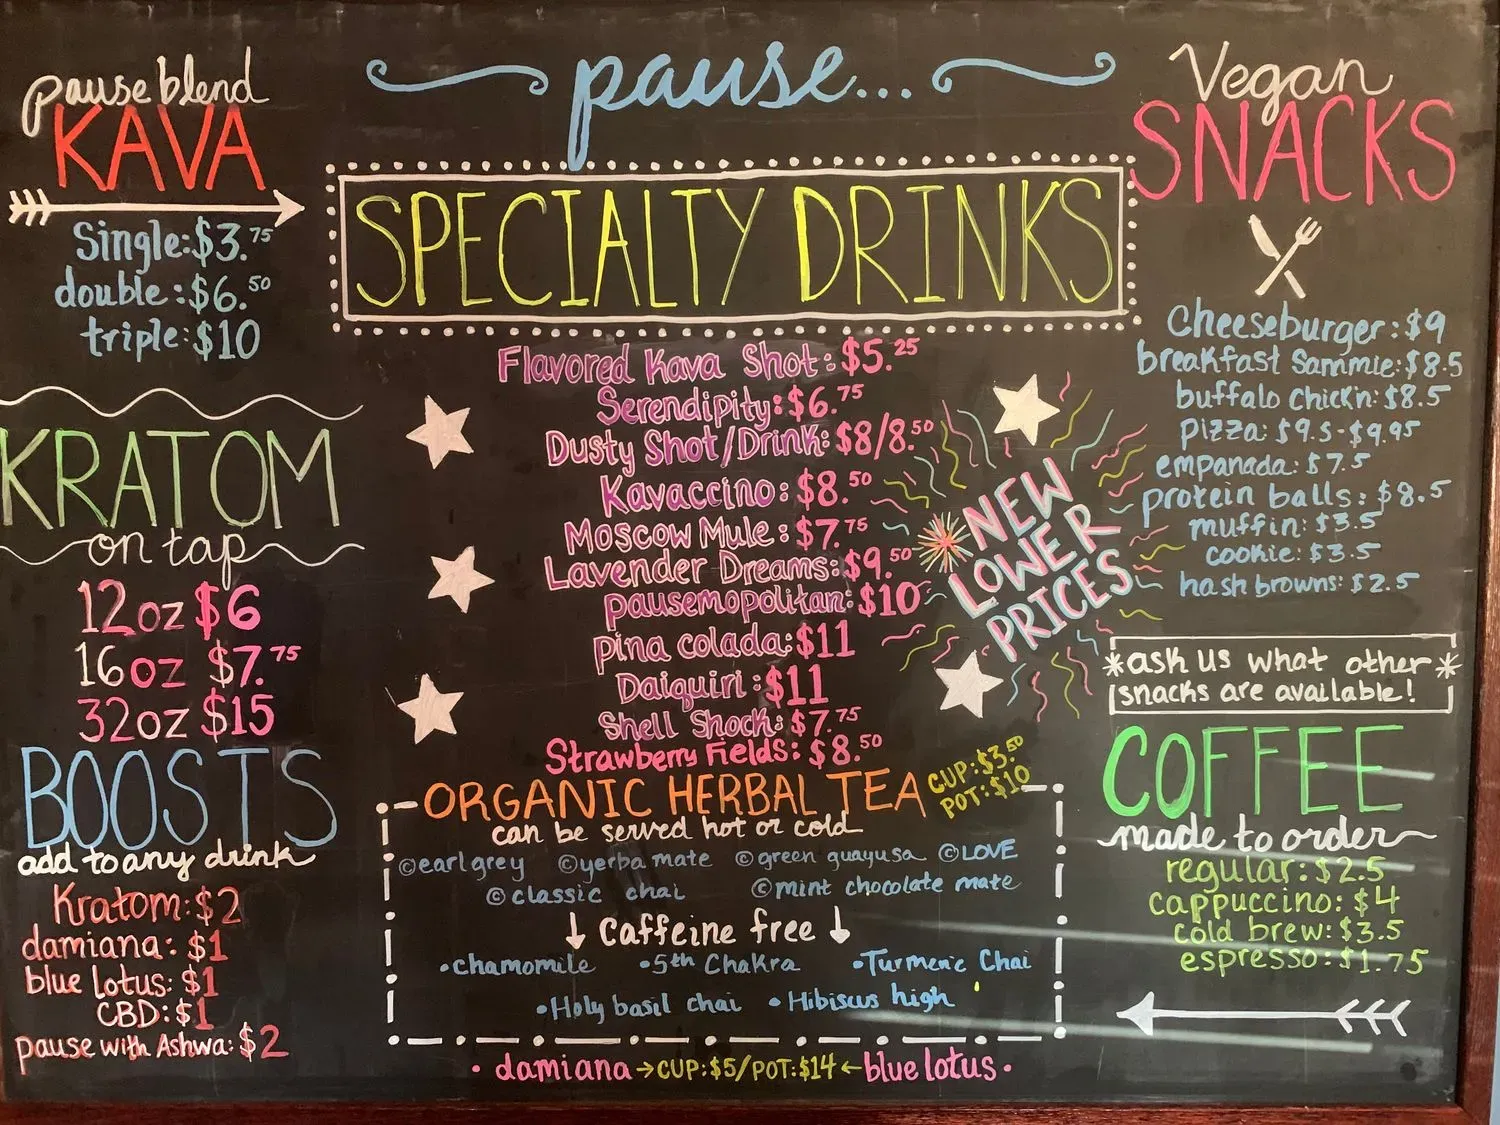 pause blend
KAVA
Single: $3.75
double: $6.50
triple: $10
KRATOM
on tap
12oz $6
16oz $7.75
32oz $15
BOOSTS
add to any drink
Kratom: $2
damiana: $1
blue lotus: $1
CBD: $1
pause with Ashwa: $2
pause...
SPECIALTY DRINKS
Flavored Kava Shot: $5.25
Serendipity: $6.75
Dusty Shot/Drink: $8/8.50
Kavaccino: $8.50
Moscow Mule: $7.75
Lavender Dreams: $9.50
pausemopolitan: $10
pina colada: $11
Daiquiri: $11
Shell Shock: $7.75
Strawberry Fields: $8.50
NEW
LOWER
PRICES
ORGANIC HERBAL TEA
CUP: $3.50
POT: $10
can be served hot or cold
©earl grey ©yerba mate ©green guayusa ©LOVE
©classic chai ©mint chocolate mate
↓ Caffeine free ↓
•chamomile •5th Chakra •Turmeric Chai
•Holy basil chai •Hibiscus high
• damiana→CUP:$5/POT:$14←blue lotus •
Vegan
SNACKS
Cheeseburger: $9
breakfast Sammie: $8.5
buffalo chick'n: $8.5
pizza: $9.5-$9.95
empanada: $7.5
protein balls: $8.5
muffin: $3.5
cookie: $3.5
hash browns: $2.5
*ask us what other*
snacks are available!
COFFEE
made to order
regular: $2.5
cappuccino: $4
cold brew: $3.5
espresso: $1.75